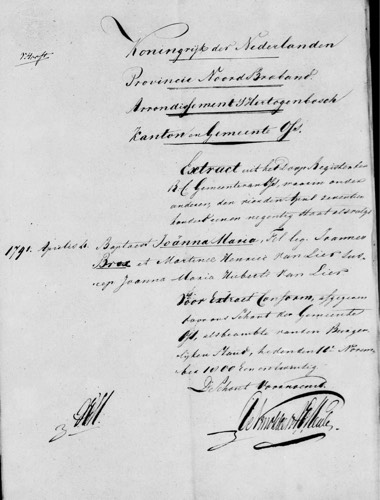 Koningrijk der Nederlanden
Provincie Noord Braband
Arrondissement S'Hertogenbosch
Kanton en Gemeente Oss.
Extract uit het Doop Register der
R.C. Gemeente van Oss, waarin onder
anderen, den vierden April zeventien
honderd een en negentig staat als volgt
1791. Aprilis 4. Baptisata Joanna Maria, Fil. leg. Joannes
Bres et Martines Henrici van Lier Sus-
cep. Joanna Maria Huberts van Lier
Voor Extract Conform, afgegeven
door ons Schout der Gemeente
Oss, als beambte van den Burger-
lijken Stand, heden den 16e Novem-
ber 18
De Schout voornoemd.